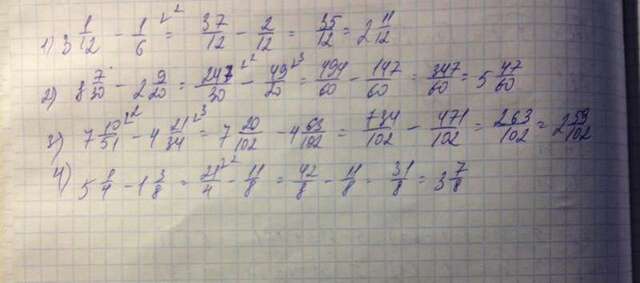 1) 3 1/12 - 1/6 ² = 37/12 - 2/12 = 35/12 = 2 11/12
2) 8 7/30 - 2 9/20 = 247/30 ² - 49/20 ³ = 494/60 - 147/60 = 347/60 = 5 47/60
3) 7 10/51 ² - 4 21/34 ³ = 7 20/102 - 4 63/102 = 734/102 - 471/102 = 263/102 = 2 59/102
4) 5 1/4 - 1 3/8 = 21/4 ² - 11/8 = 42/8 - 11/8 = 31/8 = 3 7/8